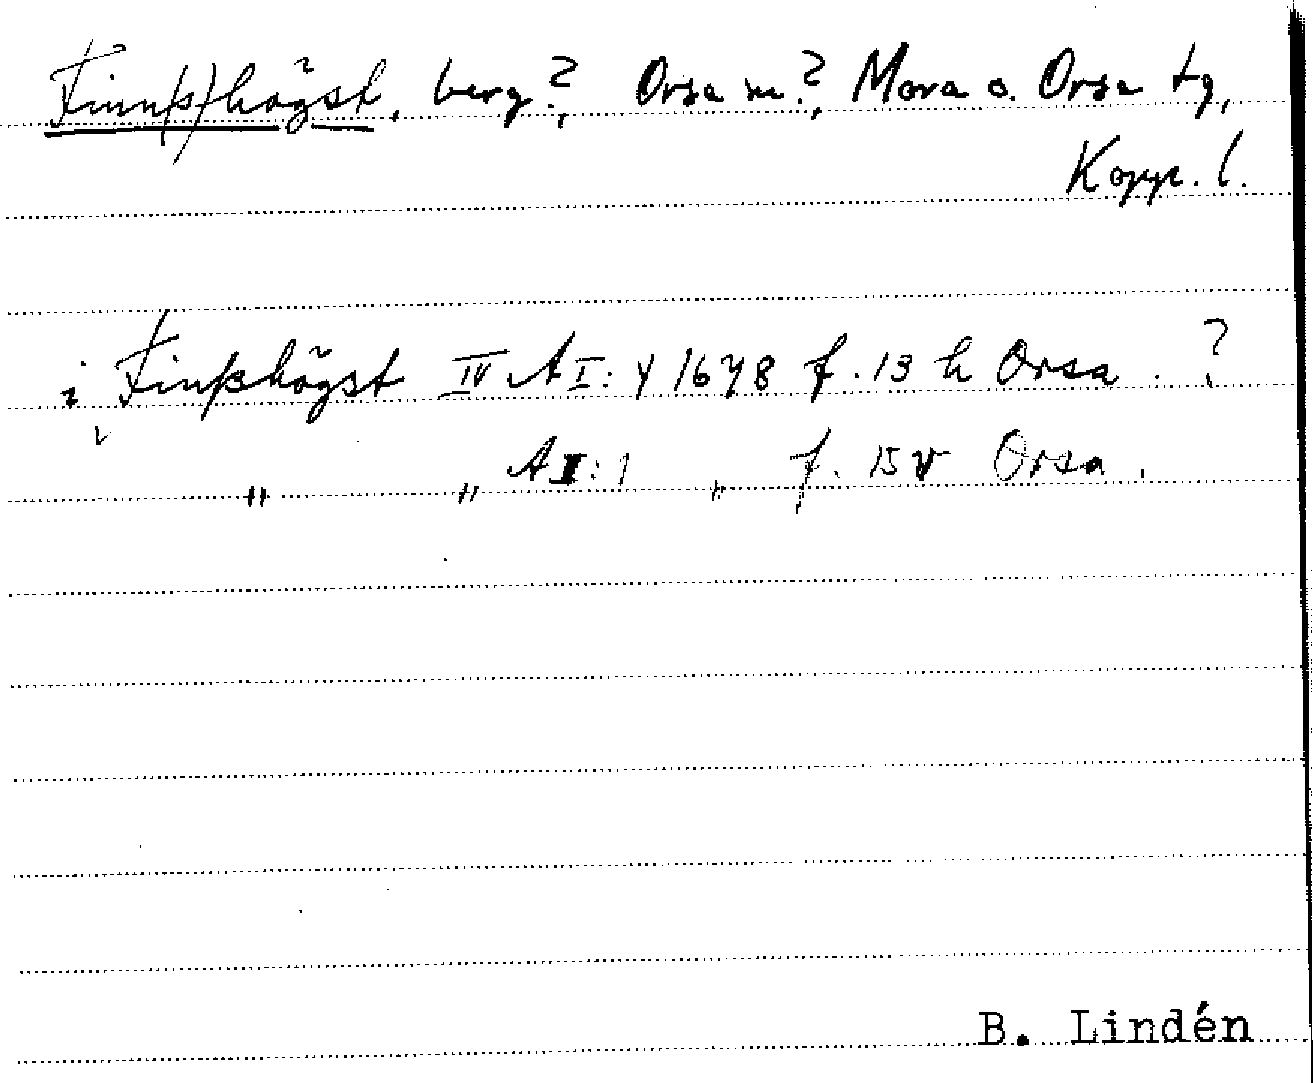 Finn(s)högst, berg?, Orsa sn?, Mora o. Orsa tg,
Kopp. l.
i Finßhögst IV AI:4 1648 f. 13 h Orsa. ?
" " AI:1 " f. 15v Orsa.
B. Lindén